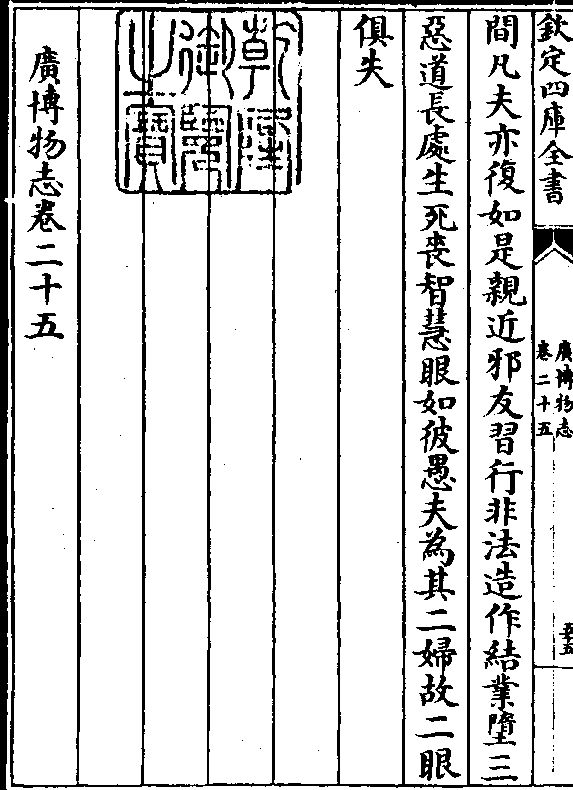 欽定四庫全書
廣博物志
卷二十五
間凡夫亦復如是親近邪友習行非法造作結業墮三
惡道長處生死喪智慧眼如彼愚夫為其二婦故二眼
俱失
乾隆
御覽
之寶
廣博物志卷二十五